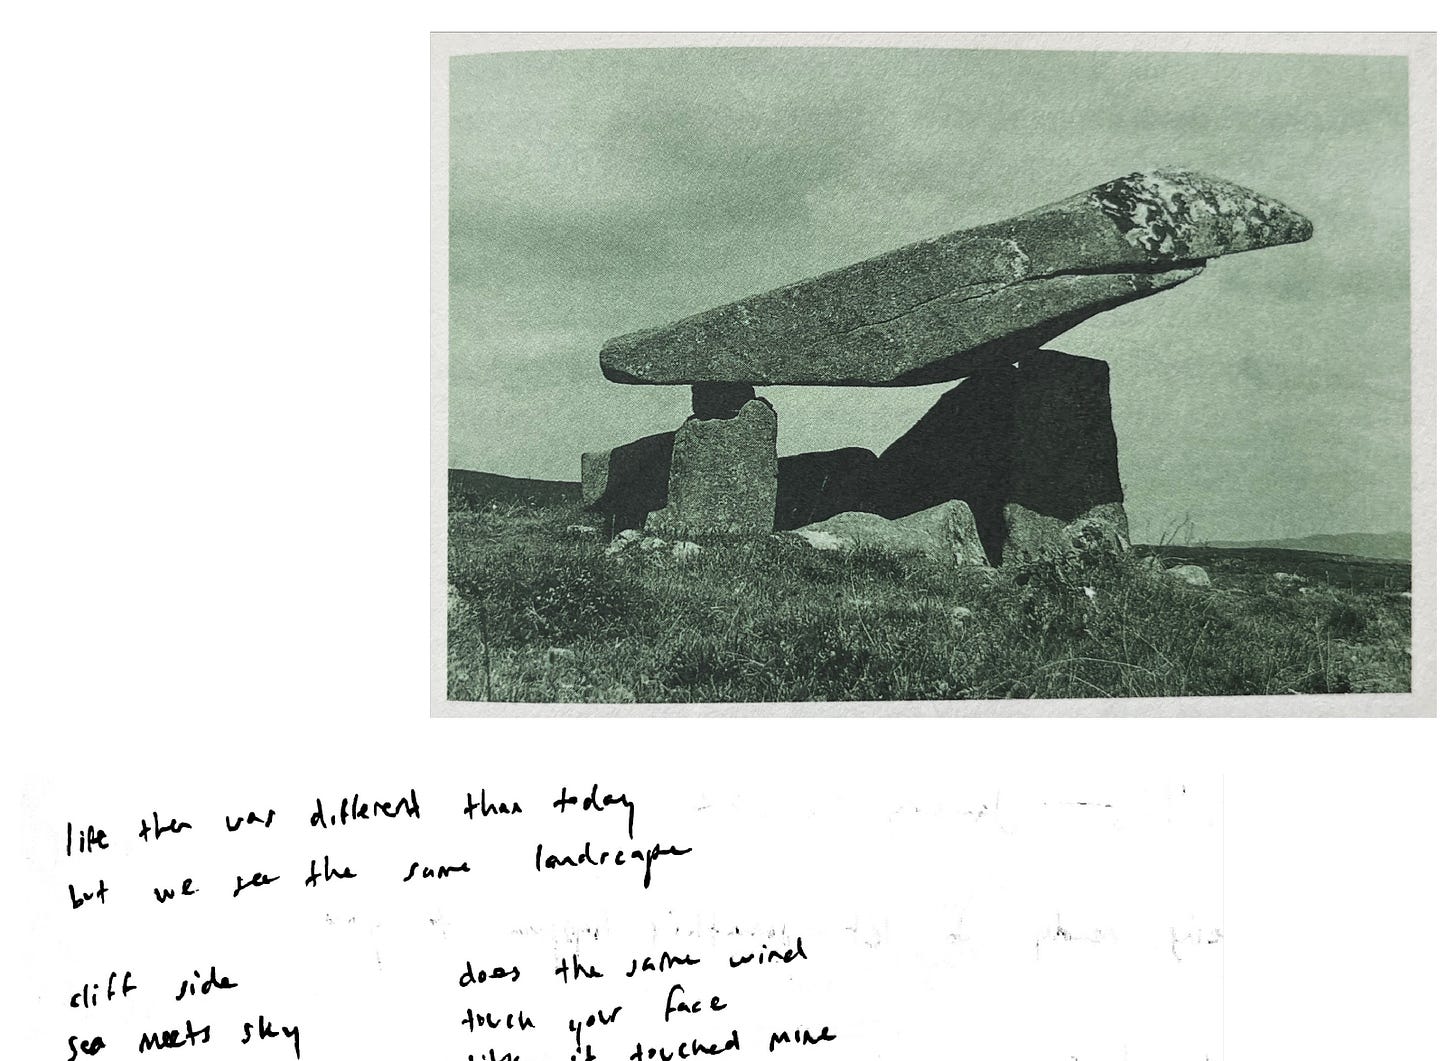 life then was different than today
but we see the same landscape
cliff side
sea meets sky
does the same wind
touch your face
like it touched mine